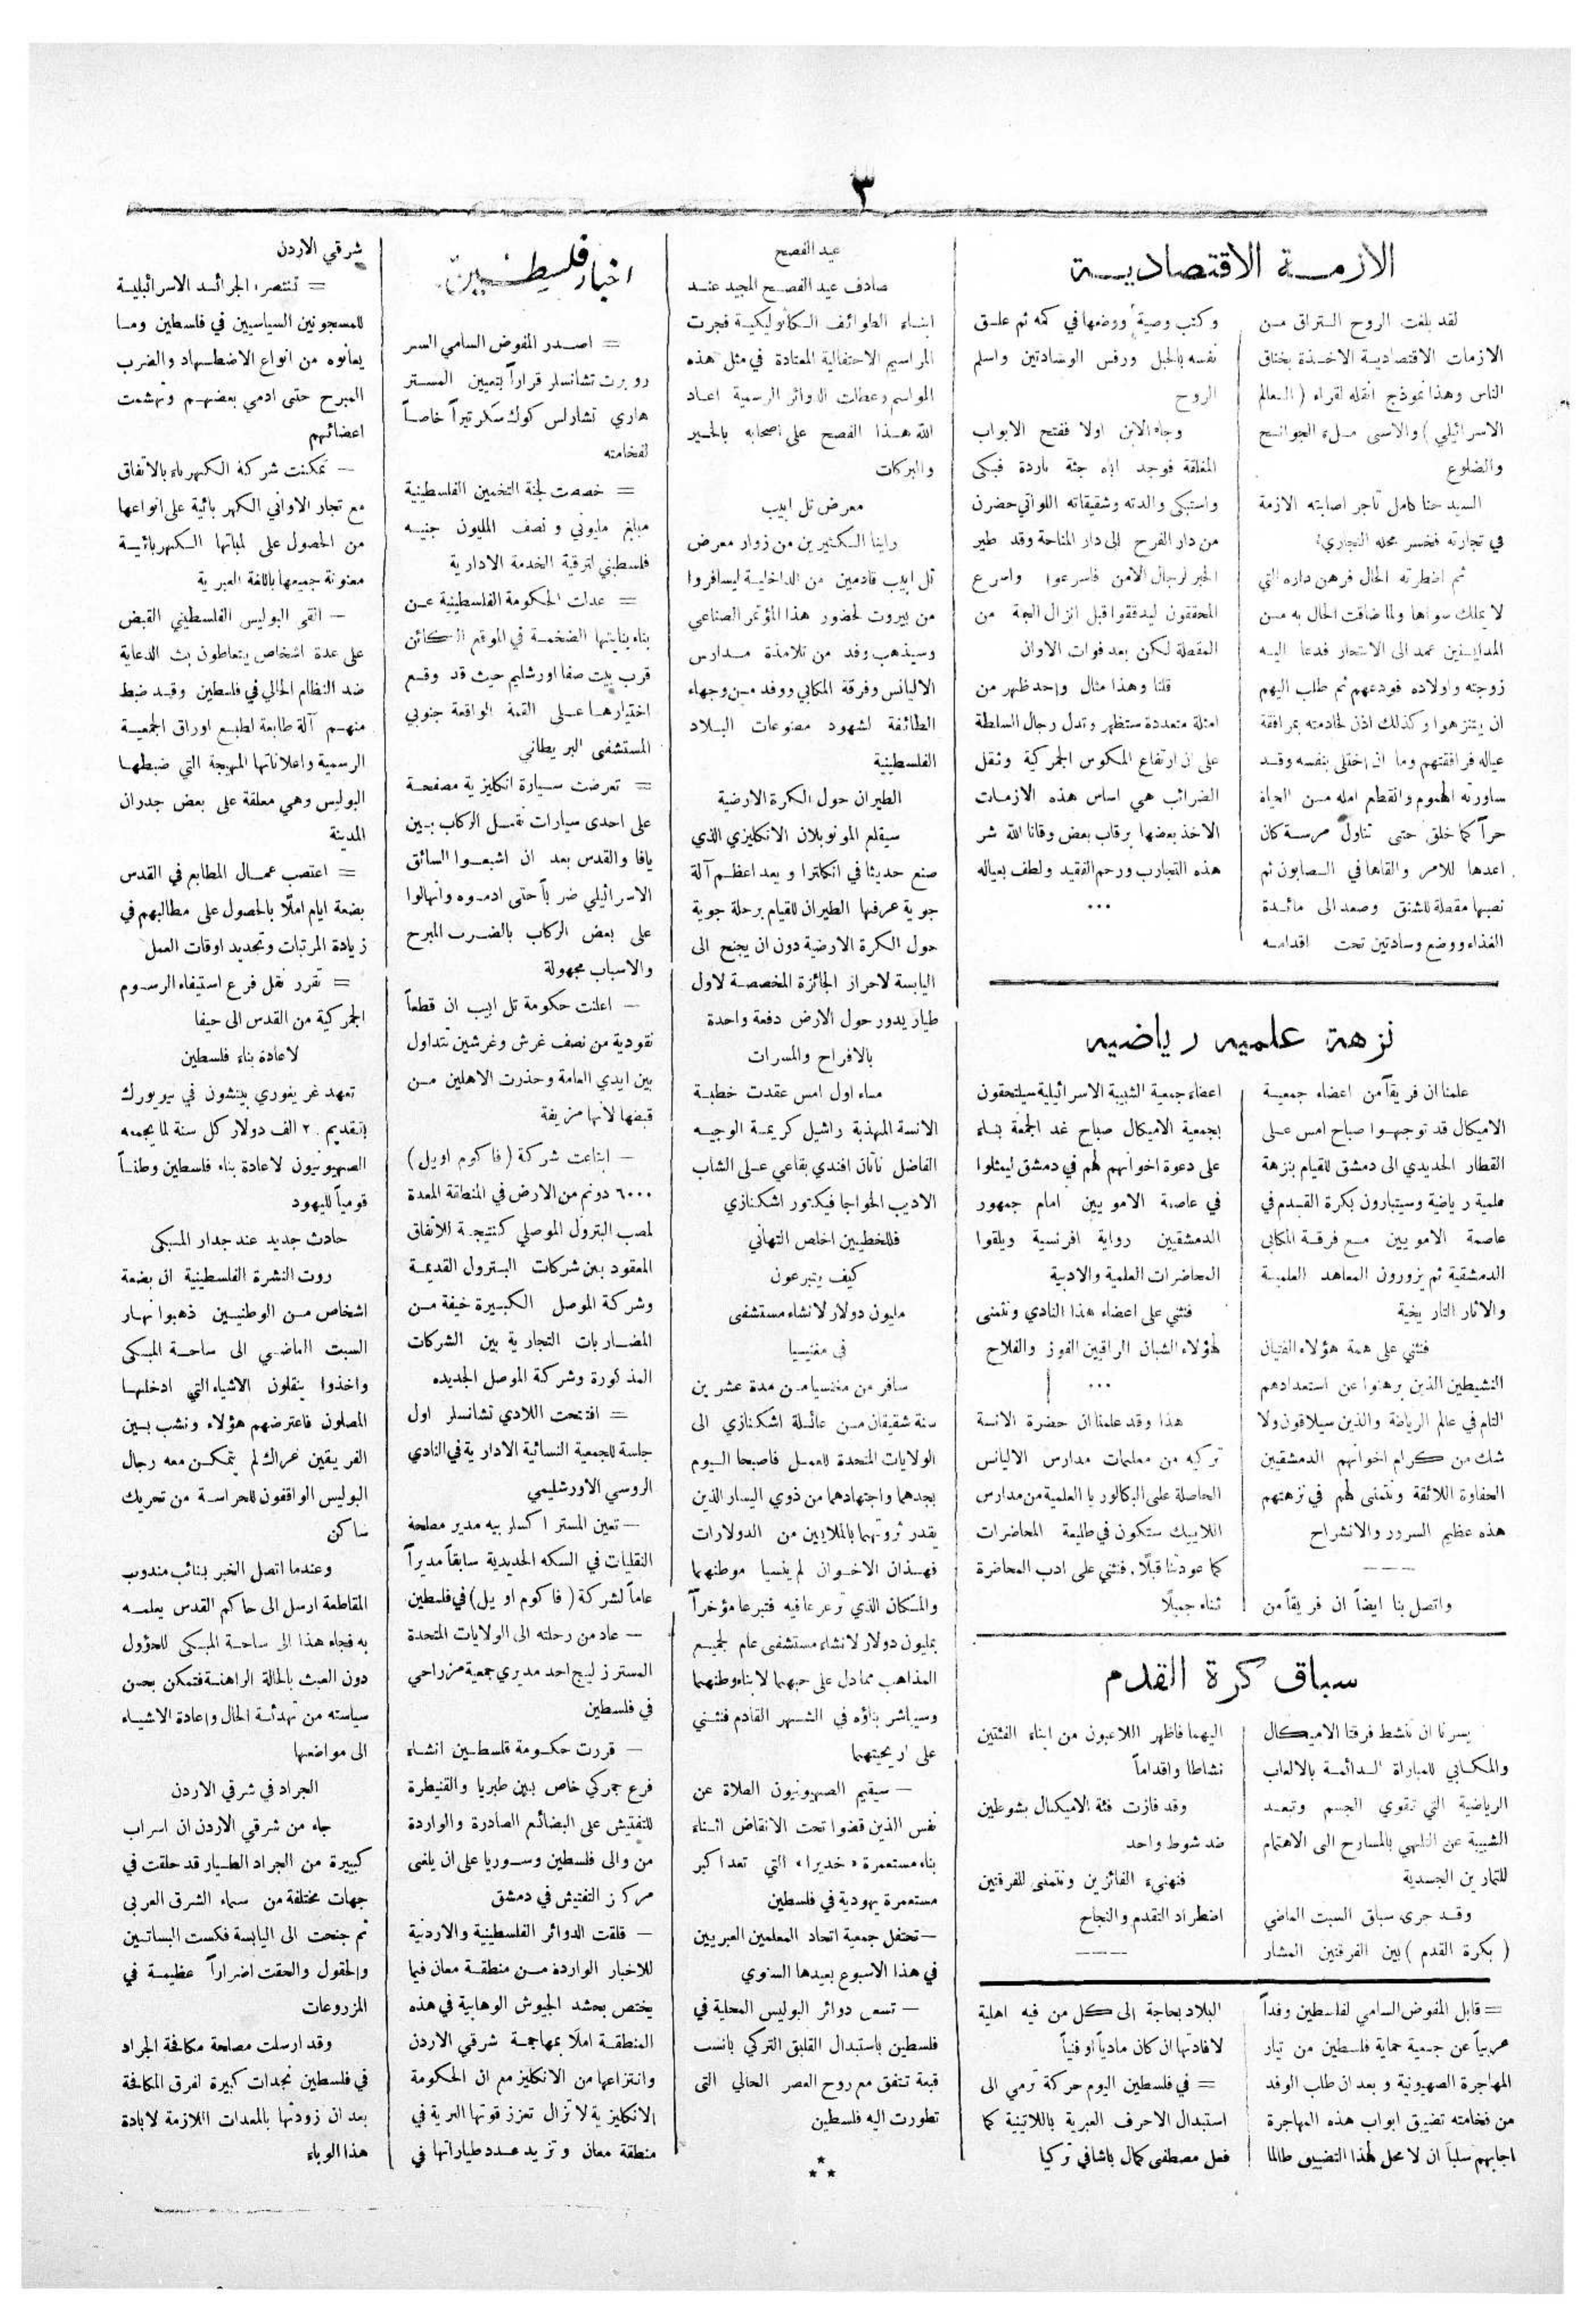 ٣
الازمـة الاقتصاديـة
لقد بلغت الروح التراق مـن
الازمات الاقتصاديـة الاخـذة بخناق
الناس وهذا نموذج انقله لقراء (العالم
الاسرائيلي) والاسى مـلء الجوانـح
والضلوع
السيد حنا كامل تاجر اصابته الازمة
في تجارته فخسر محله التجاري
ثم اضطرته الحال فرهن داره التي
لا يملك سواها ولما ضاقت الحال به مـن
المداينـين عمد الى الانتحار فدعا اليـه
زوجته واولاده فودعهم ثم طلب اليهم
ان يتنزهوا وكذلك اذن لخادمته بمرافقة
عياله فرافقتهم وما ان اختلى بنفسه وقـد
ساورته الهموم وانقطع امله مـن الحياة
حراً كما خلق حتى تناول مرسـة كان
اعدها للامر والقاها في الصابون ثم
نصبها مقصلة للشنق وصعد الى مائـدة
الغذاء ووضع وسادتين تحت اقدامـه
وكتب وصية ووضعها في كمه ثم علـق
نفسه بالحبل ورفس الوسادتين واسلم
الروح
وجاء الابن اولا ففتح الابواب
المغلقة فوجد اباه جثة باردة فبكى
واستبكى والدته وشقيقاته اللواتي حضرن
من دار الفرح الى دار المناحة وقد طير
الخبر لرجال الامن فاسرعوا واسرع
المحققون ليدققوا قبل انزال الجثة من
المقصلة لكن بعد فوات الاوان
قلنا وهذا مثال واحد ظهر من
امثلة متعددة ستظهر وتدل رجال السلطة
على ان ارتفاع المكوس الجمركية وثقل
الضرائب هي اساس هذه الازمـات
الاخذ بعضها برقاب بعض وقانا الله شر
هذه التجارب ورحم الفقيد ولطف بعياله
...
نزهة علميه رياضيه
علمنا ان فريقاً من اعضاء جمعيـة
الاميكال قد توجهـوا صباح امس عـلى
القطار الحديدي الى دمشق للقيام بنزهة
علمية رياضية وسيتبارون بكرة القـدم في
عاصمة الامويين مـع فرقـة المكابى
الدمشقية ثم يزورون المعاهد العلميـة
والاثار التاريخية
فنثني على همة هؤلاء الفتيان
النشيطين الذين برهنوا عن استعدادهم
التام في عالم الرياضة والذين سيلاقون ولا
شك من كرام اخوانهم الدمشقيين
الحفاوة اللائقة ونتمنى لهم في نزهتهم
هذه عظيم السرور والانشراح
واتصل بنا ايضاً ان فريقاً من
اعضاء جمعية الشبيبة الاسرائيلية سيلتحقون
بجمعية الاميكال صباح غد الجمعة بنـاء
على دعوة اخوانهم لهم في دمشق ليمثلوا
في عاصمة الامويين امام جمهور
الدمشقيين رواية افرنسية ويلقوا
المحاضرات العلمية والادبية
فنثني على اعضاء هذا النادي ونتمنى
لهؤلاء الشبان الراقيين الفوز والفلاح
...
هذا وقد علمنا ان حضرة الانسة
تركيه من معلمات مدارس الاليانس
الحاصلة على البكالوريا العلمية من مدارس
اللاييك ستكون في طليعة المحاضرات
كما عودتنا قبلًا. فنثني على ادب المحاضرة
ثناء جميلًا
سباق كرة القدم
يسرنا ان تنشط فرقتا الاميـكال
والمكـابي للمباراة الـدائمـة بالالعاب
الرياضية التي تقوي الجسم وتبعـد
الشبيبة عن التلهي بالمسارح الى الاهتمام
للتمارين الجسدية
وقـد جرى سباق السبت الماضي
(بكرة القدم) بين الفرقتين المشار
اليهما فاظهر اللاعبون من ابناء الفئتين
نشاطا واقداماً
وقد فازت فئة الاميكال بشوطين
ضد شوط واحد
فنهنيء الفائزين ونتمنى للفرقتين
اضطراد التقدم والنجاح
= قابل المفوض السامي لفلسطين وفداً
عربياً عن جمعية حماية فلسطين من تيار
المهاجرة الصهيونية وبعد ان طلب الوفد
من فخامته تضييق ابواب هذه المهاجرة
اجابهم سلباً ان لا محل لهذا التضييق طالما
البلاد بحاجة الى كل من فيه اهلية
لافادتها ان كان مادياً او فنياً
= في فلسطين اليوم حركة ترمي الى
استبدال الاحرف العبرية باللاتينية كما
فعل مصطفى كمال باشا في تركيا
عيد الفصح
صادف عيد الفصـح المجيد عنـد
ابنـاء الطوائف الـكاثوليكيـة فجرت
المراسيم الاحتفالية المعتادة في مثل هذه
المواسم وعطلت الدوائر الرسمية اعـاد
الله هـذا الفصح على اصحابه بالخـير
والبركات
معرض تل ابيب
راينا الـكثيرين من زوار معرض
تل ابيب قادمين من الداخليـة ليسافروا
من بيروت لحضور هذا المؤتمر الصناعي
وسيذهب وفد من تلامذة مـدارس
الاليانس وفرقة المكابي ووفد مـن وجهاء
الطائفة لشهود مصنوعات البـلاد
الفلسطينية
الطيران حول الكرة الارضية
سيقلع المونوبلان الانكليزي الذي
صنع حديثا في انكلترا ويعد اعظـم آلة
جوية عرفها الطيران للقيام برحلة جوية
حول الكرة الارضية دون ان يجنح الى
اليابسة لاحراز الجائزة المخصصـة لاول
طيار يدور حول الارض دفعة واحدة
بالافراح والمسرات
مساء اول امس عقدت خطبـة
الانسة المهذبة راشيل كريمـة الوجيـه
الفاضل ناثان افندي بقاعي عـلى الشاب
الاديب الخواجا فيكتور اشكنازي
فللخطيبين اخلص التهاني
كيف يتبرعون
مليون دولار لانشاء مستشفى
في مغنيسيا
سافر من مغنسيا مـن مدة عشرين
سنة شقيقان مـن عائـلة اشكنازي الى
الولايات المتحدة للعمـل فاصبحا اليوم
بجدهما واجتهادهما من ذوي اليسار الذين
يقدر ثروتهما بالملايين من الدولارات
فهـذان الاخـوان لم ينسيا موطنهما
والمكان الذي ترعرعا فيه فتبرعا مؤخراً
بمليون دولار لانشاء مستشفى عام لجميـع
المذاهب مما دل على حبهما لابناء وطنهما
وسيباشر بناؤه في الشـهر القادم فنثـني
على اريحيتهما
— سيقيم الصهيونيون الصلاة عن
نفس الذين قضوا تحت الانقاض اثـناء
بناء مستعمرة «خديرا» التي تعد اكبر
مستعمرة يهودية في فلسطين
— تحتفل جمعية اتحاد المعلمين العبريين
في هذا الاسبوع بعيدها السنوي
— تسعى دوائر البوليس المحلية في
فلسطين باستبدال القلبق التركي بانسب
قبعة تتفق مع روح العصر الحالي التى
تطورت اليه فلسطين
***
اخبار فلسطـين
= اصـدر المفوض السامي السر
روبرت تشانسلر قراراً بتعيين المسـتر
هاري تشارلس كوك سكرتيراً خاصـاً
لفخامته
= خصصت لجنة التخمين الفلسطينية
مبلغ مليوني ونصف المليون جنيـه
فلسطيني لترقية الخدمة الادارية
= عدلت الحكومة الفلسطينية عـن
بناء بنايتها الضخمـة في الموقع الـكائن
قرب بيت صفا اورشليم حيث قد وقـع
اختيارهـا عـلى القمة الواقعة جنوبي
المستشفى البريطاني
= تعرضت سـيارة انكليزية مصفحـة
على احدى سيارات نقـل الركاب بـين
يافا والقدس بعد ان اشبعـوا السائق
الاسرائيلي ضرباً حتى ادمـوه وانهالوا
على بعض الركاب بالضـرب المبرح
والاسباب مجهولة
— اعلنت حكومة تل ابيب ان قطعاً
نقودية من نصف غرش وغرشين تتداول
بين ايدي العامة وحذرت الاهلين مـن
قبضها لانها مزيفة
— ابتاعت شركة (فاكوم اويل)
٦٠٠٠ دونم من الارض في المنطقة المعدة
لمصب البترول الموصلي كنتيجـة للاتفاق
المعقود بين شركات البـترول القديمـة
وشركة الموصل الكبـيرة خيفة مـن
المضـاربات التجارية بين الشركات
المذكورة وشركة الموصل الجديده
= افتتحت اللادي تشانسلر اول
جلسة للجمعية النسائية الادارية في النادي
الروسي الاورشليمي
— تعين المستر اكسلر بيه مدير مصلحة
النقليات في السكه الحديدية سابقاً مديراً
عاماً لشركة (فاكوم اويل) في فلسطين
— عاد من رحلته الى الولايات المتحدة
المستر زليبج احد مديري جمعية مزراحي
في فلسطين
— قررت حكـومة فلسطـين انشـاء
فرع جمركي خاص بين طبريا والقنيطرة
للتفتيش على البضائع الصادرة والواردة
من والى فلسطين وسـوريا على ان يلغى
مركز التفتيش في دمشق
— قلقت الدوائر الفلسطينية والاردنية
للاخبار الواردة مـن منطقـة معان فيما
يختص بحشد الجيوش الوهابية في هذه
المنطقـة املًا بمهاجمـة شرقي الاردن
وانتزاعها من الانكليز مع ان الحكومة
الانكليزية لا تزال تعزز قوتها العربية في
منطقة معان وتزيد عـدد طياراتها في
شرقي الاردن
= تنتصر الجرائـد الاسرائيليـة
للمسجونين السياسيين في فلسطين ومـا
يعانوه من انواع الاضطـهاد والضرب
المبرح حتى ادمي بعضهـم وتهشمت
اعضائهم
— تمكنت شركة الكهرباء بالاتفاق
مع تجار الاواني الكهربائية على انواعها
من الحصول على لمباتها الـكهربائيـة
معنونة جميعها باللغة العبرية
— القى البوليس الفلسطيني القبض
على عدة اشخاص يتعاطون بث الدعاية
ضد النظام الحالي في فلسطين وقـد ضبط
منهـم آلة طابعة لطبـع اوراق الجمعيـة
الرسمية واعلاناتها المهيجة التي ضبطهـا
البوليس وهي معلقة على بعض جدران
المدينة
= اعتصب عمـال المطابع في القدس
بضعة ايام املًا بالحصول على مطالبهم في
زيادة المرتبات وتحديد اوقات العمل
= تقرر نقل فرع استيفاء الرسـوم
الجمركية من القدس الى حيفا
لاعادة بناء فلسطين
تعهد غريغوري بينشون في نيويورك
بتقديم ٢٠ الف دولار كل سنة لما يجمعه
الصهيونيون لاعادة بناء فلسطين وطنـاً
قومياً لليهود
حادث جديد عند جدار المبـكى
روت النشرة الفلسطينية ان بضعة
اشخاص مـن الوطنيـين ذهبوا نهـار
السبت الماضـي الى ساحـة المبـكى
واخذوا ينقلون الاشياء التي ادخلهـا
المصلون فاعترضهم هؤلاء ونشب بـين
الفريقين عراك لم يتمكـن معه رجال
البوليس الواقفون للحراسـة من تحريك
ساكن
وعندما اتصل الخبر بنائب مندوب
المقاطعة ارسل الى حاكم القدس يعلمـه
به فجاء هذا الى ساحـة المبـكى للحؤول
دون العبث بالحالة الراهنـة فتمكن بحسن
سياسته من تهدئـة الحال واعادة الاشيـاء
الى مواضعها
الجراد في شرقي الاردن
جاء من شرقي الاردن ان اسراب
كبيرة من الجراد الطـيار قد حلقت في
جهات مختلفة من سماء الشرق العربى
ثم جنحت الى اليابسة فكست البساتـين
والحقول والحقت اضراراً عظيمـة في
المزروعات
وقد ارسلت مصلحة مكافحة الجراد
في فلسطين نجدات كبيرة لفرق المكافحة
بعد ان زودتها بالمعدات اللازمة لابادة
هذا الوباء